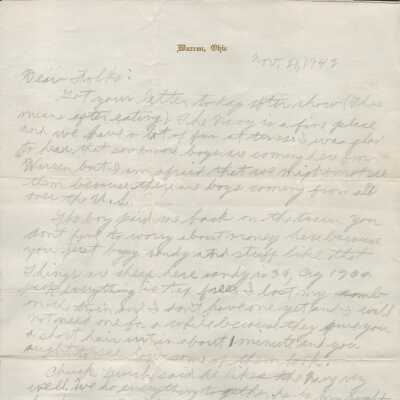 Warren, Ohio
Nov. 21, 1942
Dear Folks:
Got your letter today after chow (Chow
means eating) The Navy is a fine place
and we have a lot of fun at times. I was glad
to hear that some more boys are coming here from
Warren but I am afraid that we might not see
them because there are boys coming from all
over the U.S.
The boy paid me back on the train you
don't have to worry about money here because
you just buy candy and stuff like that
Things are cheap here candy is 3¢, Cig
everything is tax free. I lost my comb
on the train and I don't have one yet and I will
not need one for a while because they give you
a short hair cut in about 1 minute and you
ought to see how some of them look.
Chuck said he likes the Navy very
well. We do everything together